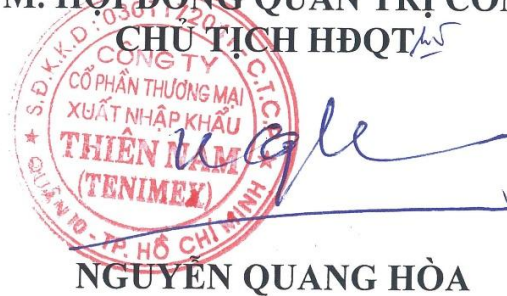 M. HỘI ĐỒNG QUẢN TRỊ CÔN
CHỦ TỊCH HĐQT
S.Đ.K.K.D:
C.T.C.P
CÔNG TY
CỔ PHẦN THƯƠNG MẠI
XUẤT NHẬP KHẨU
THIÊN NAM
(TENIMEX)
QUẬN 10 - TP. HỒ CHÍ MINH
NGUYỄN QUANG HÒA